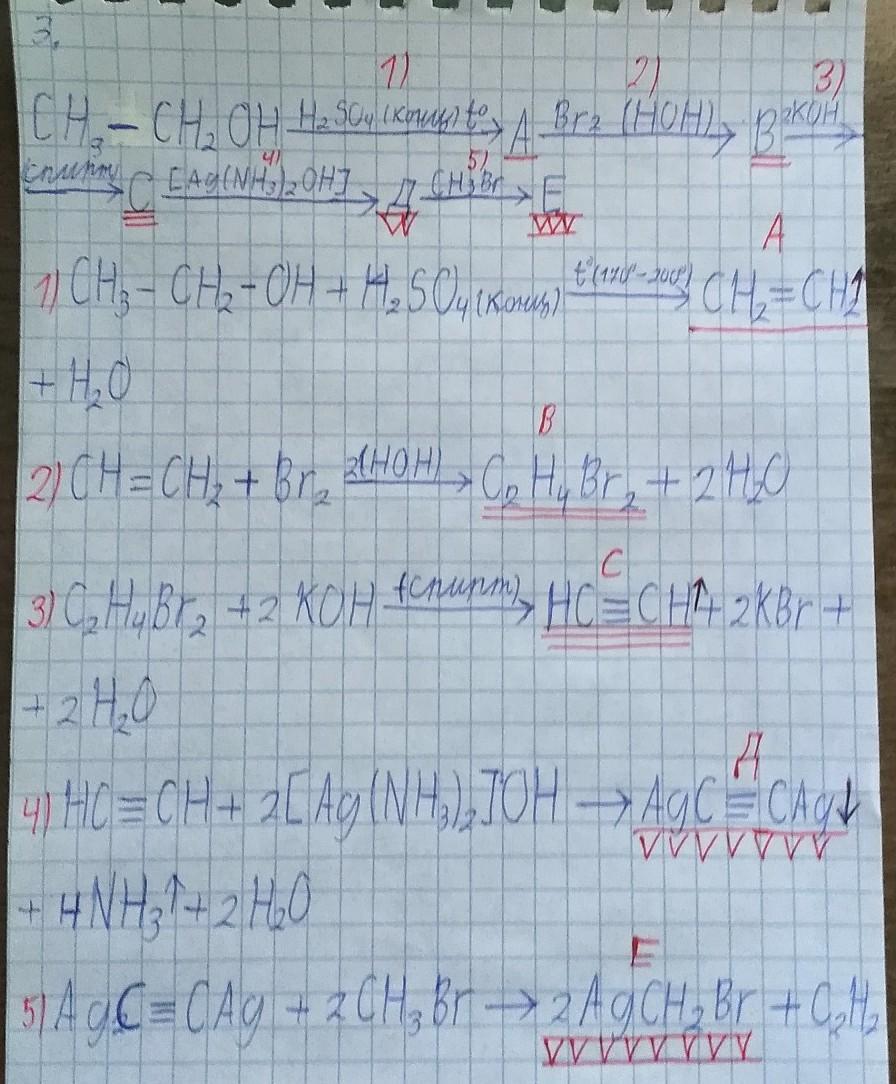 3.
1) 2) 3)
CH₃ – CH₂OH H₂SO₄(конц) t° → A Br₂ (HOH) → B 2KOH →
спирт → C 4) [Ag(NH₃)₂OH] → Д 5) CH₃Br → E
A
1) CH₃ – CH₂ – OH + H₂SO₄(конц) t°(170°-200°) → CH₂=CH₂↑
+ H₂O
B
2) CH=CH₂ + Br₂ 2(HOH) → C₂H₄Br₂ + 2H₂O
C
3) C₂H₄Br₂ + 2 KOH (спирт) → HC≡CH↑ + 2KBr +
+ 2H₂O
Д
4) HC≡CH + 2[Ag(NH₃)₂]OH → AgC≡CAg↓
+ 4NH₃↑ + 2H₂O
E
5) AgC≡CAg + 2CH₃Br → 2AgCH₂Br + C₂H₂